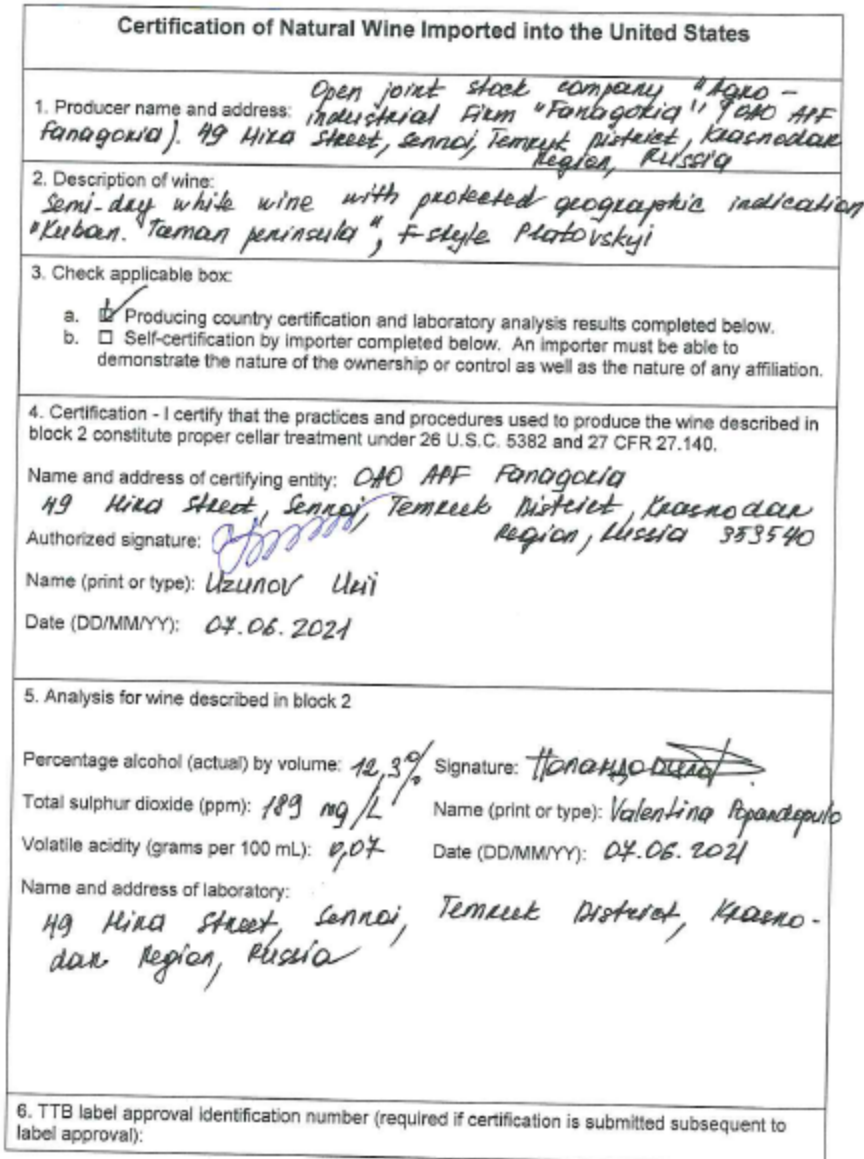 Certification of Natural Wine Imported into the United States
1. Producer name and address: Open joint stock company "Agro -
industrial Firm "Fanagoria" (OAO APF
Fanagoria). 49 Mira Street, Sennoi, Temryk District, Krasnodar
Region, Russia
2. Description of wine:
Semi-dry white wine with protected geographic indication
"Kuban. Taman peninsula", F-style Platovskyi
3. Check applicable box:
a. Producing country certification and laboratory analysis results completed below.
b. ☐ Self-certification by importer completed below. An importer must be able to
demonstrate the nature of the ownership or control as well as the nature of any affiliation.
4. Certification - I certify that the practices and procedures used to produce the wine described in
block 2 constitute proper cellar treatment under 26 U.S.C. 5382 and 27 CFR 27.140.
Name and address of certifying entity: OAO APF Fanagoria
49 Mira Street, Sennoi, Temreek District, Krasnodar
Region, Russia 353540
Authorized signature:
Name (print or type): Uzunov
Date (DD/MM/YY): 07.06.2021
5. Analysis for wine described in block 2
Percentage alcohol (actual) by volume: 12,3% Signature:
Total sulphur dioxide (ppm): 189 mg/L Name (print or type): Valentina Popandopulo
Volatile acidity (grams per 100 mL): 0,07 Date (DD/MM/YY): 07.06.2021
Name and address of laboratory:
49 Mira Street, Sennoi, Temreek District, Krasno-
dar Region, Russia
6. TTB label approval identification number (required if certification is submitted subsequent to
label approval):